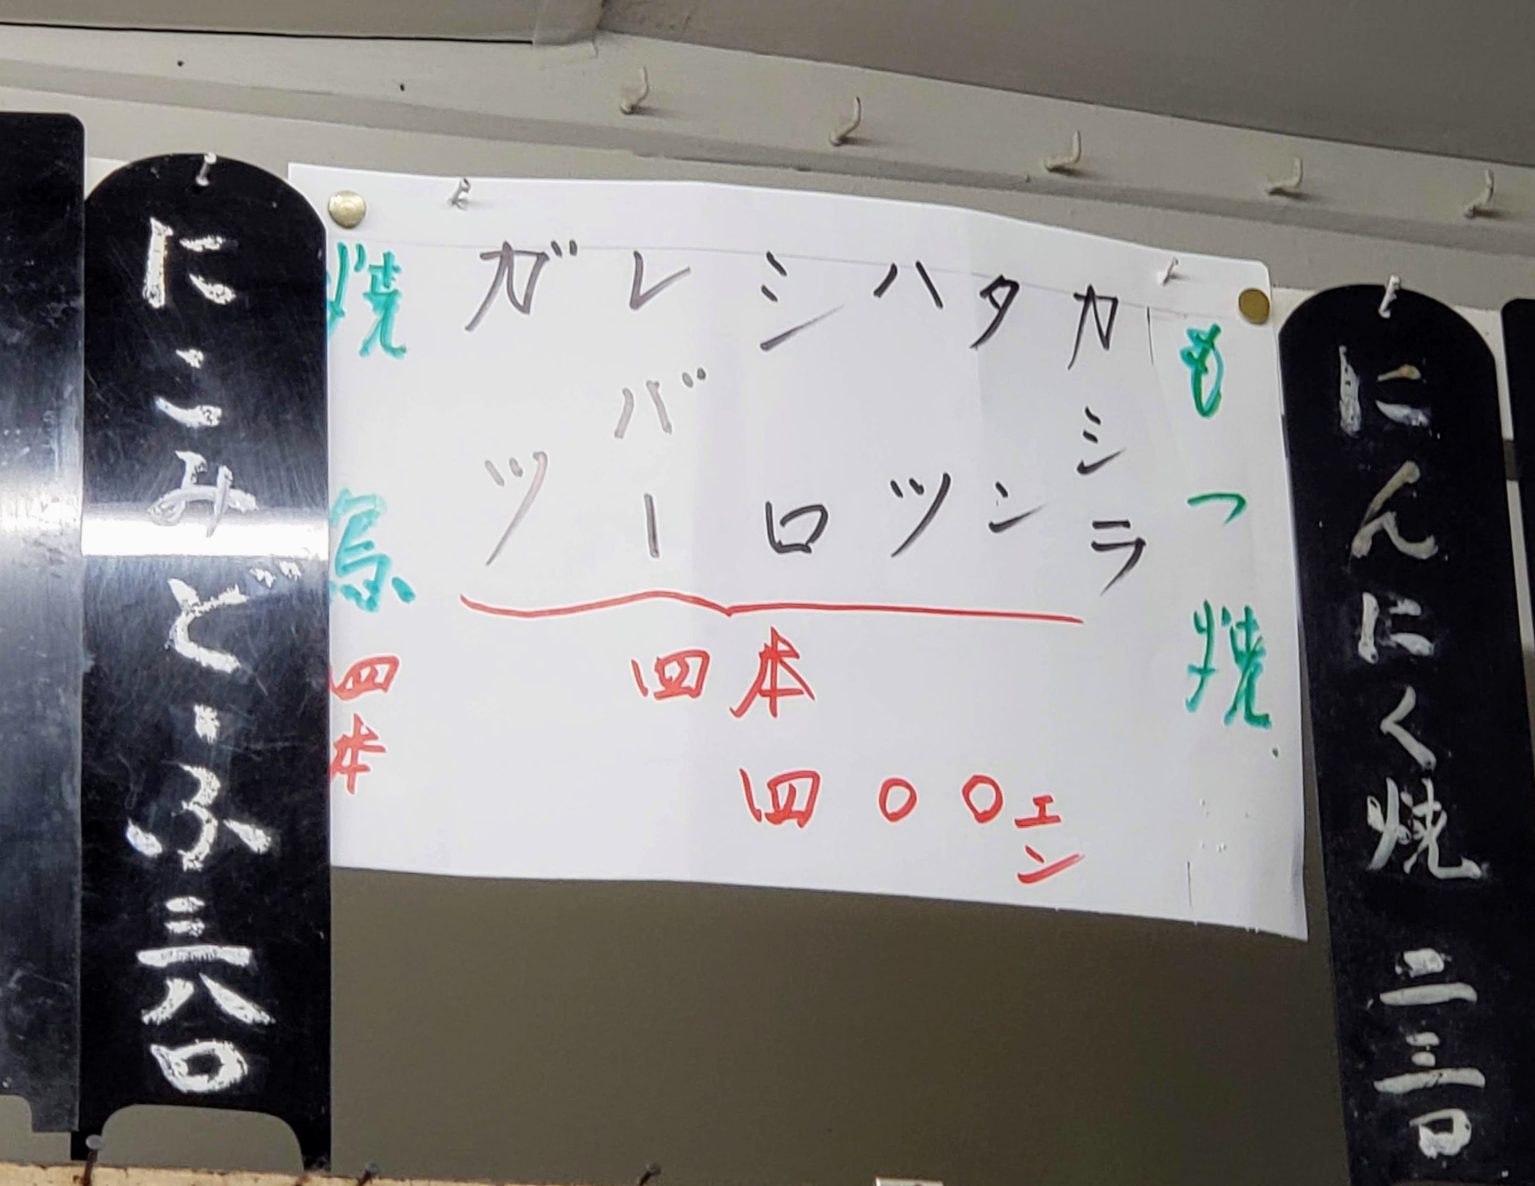 にんにく焼 二三〇
もつ焼
カシラ
タン
ハツ
シロ
レバー
ガツ
四本
四〇〇エン
焼鳥 四本
にこみどーふ 三八〇